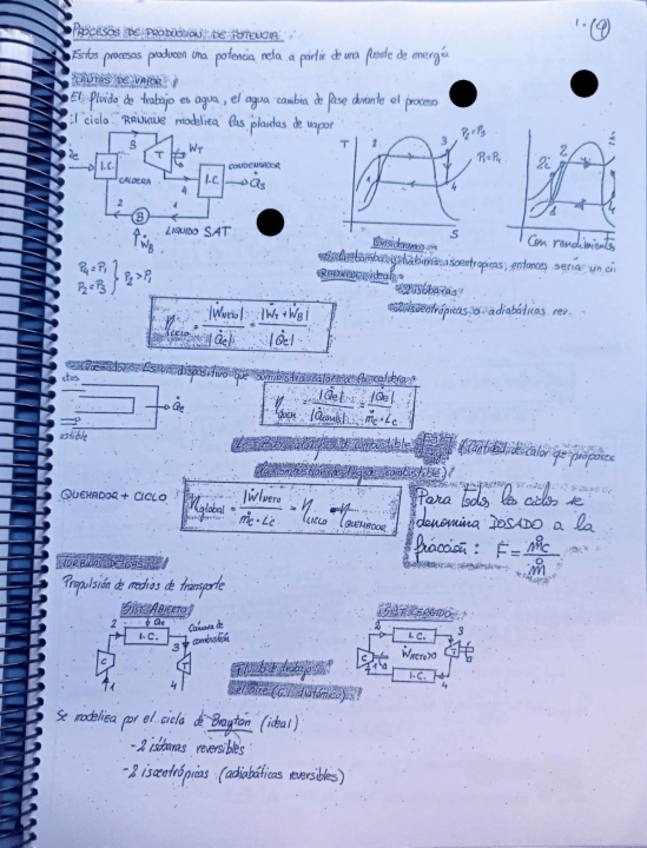 1.-(9)
PROCESOS DE PRODUCCION DE POTENCIA
Estos procesos producen una potencia neta a partir de una fuente de energía
PLANTAS DE VAPOR
El fluido de trabajo es agua, el agua cambia de fase durante el proceso
El ciclo RANKINE modeliza las plantas de vapor
3
T
ẆT
I.C.
CALDERA
4
I.C.
CONDENSADOR
Q̇s
2
B
1
LIQUIDO SAT
ẆB
T
2
3
P2=P3
P1=P4
1
4
S
2i
2
1
Con rendimiento
P4=P1
P2=P3
P2>P1
Consideramos
la bomba y turbina isoentropicas, entonces sería un ci
RANKINE ideal
2 isobaras
2 isoentrópicas o adiabáticas rev.
ηCICLO = |ẆNETO| / |Q̇e| = |ẆT+ẆB| / |Q̇e|
Quemador: Es un dispositivo que suministra calor a la caldera
Q̇e
ηQUEM = |Q̇e| / |Q̇comb| = |Q̇e| / ṁc·Lc
(Cantidad de calor que proporci
QUEMADOR + CICLO
ηglobal = |Ẇ|NETO / ṁc·Lc = ηCICLO · ηQUEMADOR
Para todos los ciclos se
denomina DOSADO a la
fracción: F = ṁc / ṁ
TURBINAS DE GAS
Propulsión de medios de transporte
SIST. ABIERTO
SIST. CERRADO
2
Qe
I.C.
3
Cámara de
combustión
C
T
1
4
2
I.C.
3
C
ẆNETO>0
T
1
I.C.
4
Fluido de trabajo
el aire (G.I. diatómico)
Se modeliza por el ciclo de Brayton (ideal)
-2 isóbaras reversibles
-2 isoentrópicas (adiabáticas reversibles)